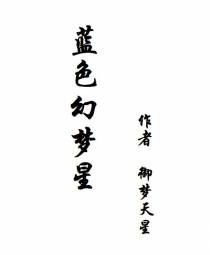 蓝色幻梦星
作者 御梦天星